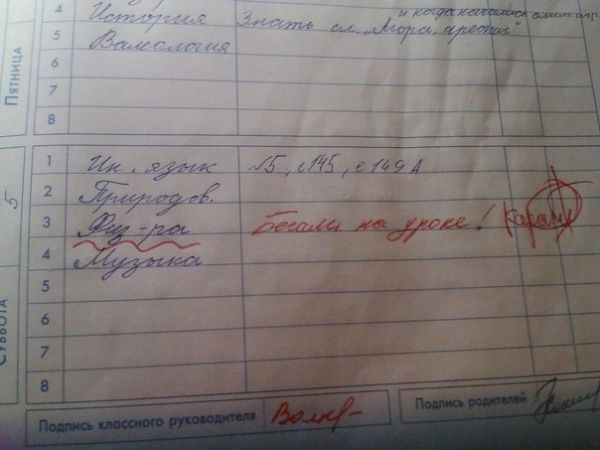 ПЯТНИЦА
4 История Знать сл. „Мора, ареопаг"
и когда начались олимп. игр.
5 Валеология
6
7
8
СУББОТА
5
1 Ин. язык √5, с 145, с 149 А
2 Природов.
3 Физ-ра Бегали на уроке!
4 Музыка
5
6
7
8
Подпись классного руководителя
Подпись родителей